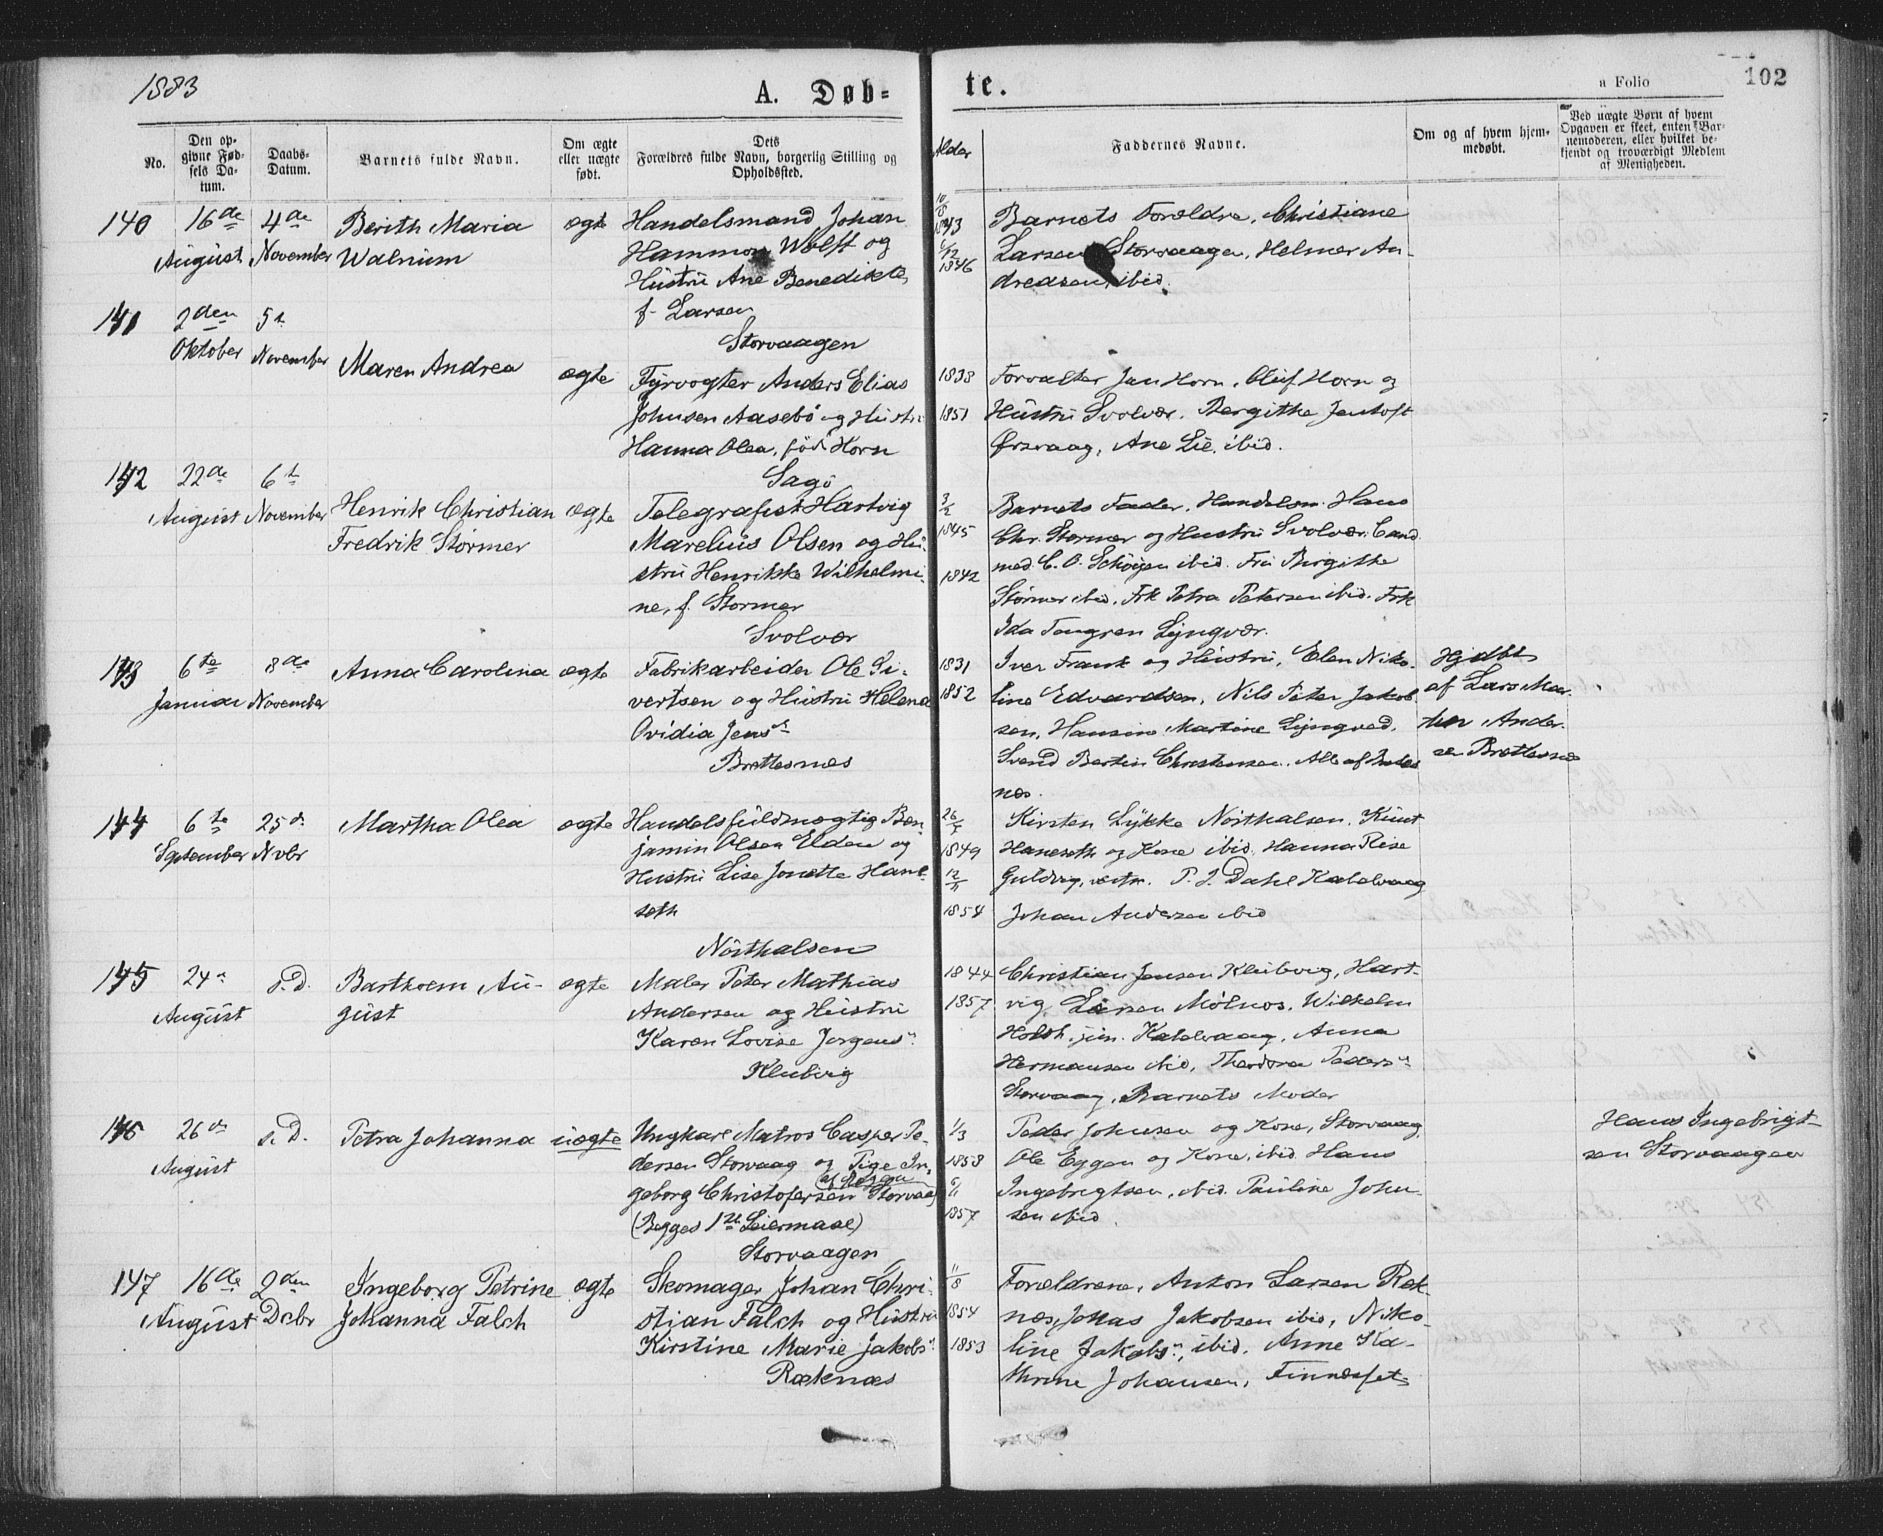 1883
A. Døb-
te.
a Folio
102
No.
Den op-
givne Fød-
sels Da-
tum.
Daabs-
Datum.
Barnets fulde Navn.
Om ægte
eller uægte
født.
Dets
Forældres fulde Navn, borgerlig Stilling og
Opholdssted.
Alder
Faddernes Navne.
Om og af hvem hjem-
medøbt.
Ved uægte Børn af hvem
Opgaven er skeet, enten Bar-
nemoderen, eller hvilket be-
kjendt og troværdigt Medlem
af Menigheden.
140
16de
August
4de
November
Berith Maria
Walnum
ægte
Handelsmand Johan
Hammon Wolff og
Hustru Ane Benedikte,
f. Larsen
Storvaagen
1843
1846
Barnets Forældre, Christiane
Larsen Storvaagen, Helmer An-
dreasen, ibid.
141
2den
Oktober
5t
November
Maren Andrea
ægte
Fyrvogter Anders Elias
Johnsen Aasebö og Hustru
Hanna Olea, föd Horn
Sagö
1838
1851
Forvalter Jan Horn, Oluf Horn og
Hustru Svolvær. Bergithe Jentoft
Ørsvaag, Ane Lie, ibid.
142
22de
August
6t
November
Henrik Christian
Fredrik Størmer
ægte
Telegrafist Hartvig
Marelius Olsen og Hu-
stru Henrikke Wilhelmi-
ne, f. Størmer
Svolvær
3/2
1845
1842
Barnets Fader, Handelsm. Hans
Chr. Størmer og Hustru Svolvær. Cand.
med. C. O. Schöyen ibid. Fru Birgithe
Störmer ibid. Frk Petra Petersen ibid. Frk
Ida Lyngvær.
143
6te
Januar
8de
November
Anna Carolina
ægte
Fabrikarbeider Ole Si-
vertsen og Hustru Helena
Ovidia Jens"
Brettesnæs
1831
1852
Iver Frank og Hustru, Elen Niko-
line Edvardsen, Nils Peter Jakob-
sen, Hansine Martine Lyngved,
Svend Bertin Christensen. Alle af Brettes
næs.
Hjdbt
af Lars Mar-
tin Ander-
sen Brettesnæs
144
6te
September
25d
Novbr
Martha Olea
ægte
Handelsfuldmægtig Ben-
jamin Olsen Elden og
Hustru Lise Jonette Hane-
seth
Nörthalsen
1849
12/11
1854
Kirsten Lykke Nörthalsen. Knut
Haneseth og Kone ibid. Hanna Rise
Guldvig, P. J. Dahl Kalelvaag
Johan Andersen ibid
145
24"
August
s. D.
Barthoem Au-
gust
ægte
Maler Peter Mathias
Andersen og Hustru
Karen Lovise Jorgens"
Kleibvig
1844
1857
Christian Jensen Kleibvig, Hart-
vig Larsen Mölnos. Wilhelm
Holth jun. Kalelvaag, Anna
Hermansen ibid, Theodora Peders"
Storvaag, Barnets Moder
146
26de
August
s. D.
Petra Johanna
uægte
Ungkarl Matros Casper Pe-
dersen Storvaag og Pige In-
geborg Christofersen Storvaag
(Begges 1st Leiermaal)
Storvaagen
1/3
1858
1857
Peder Johnsen og Kone, Storvaag,
Ole Eggen og Kone, ibid. Hans
Ingebrigtsen, ibid. Pauline John-
sen ibid.
Hans Ingebrigt-
sen Storvaagen
147
16de
August
2den
Dcbr
Ingeborg Petrine
Johanna Falch
ægte
Skomager Johan Chri-
stian Falch og Hustru
Kirstine Marie Jakobs"
Ræknæs
11/8
1854
1853
Forældrene, Anton Larsen Ræk-
næs, Johas Jakobsen ibid, Niko-
line Jakobs", ibid. Anne Ka-
thrine Johansen, Finnæsset